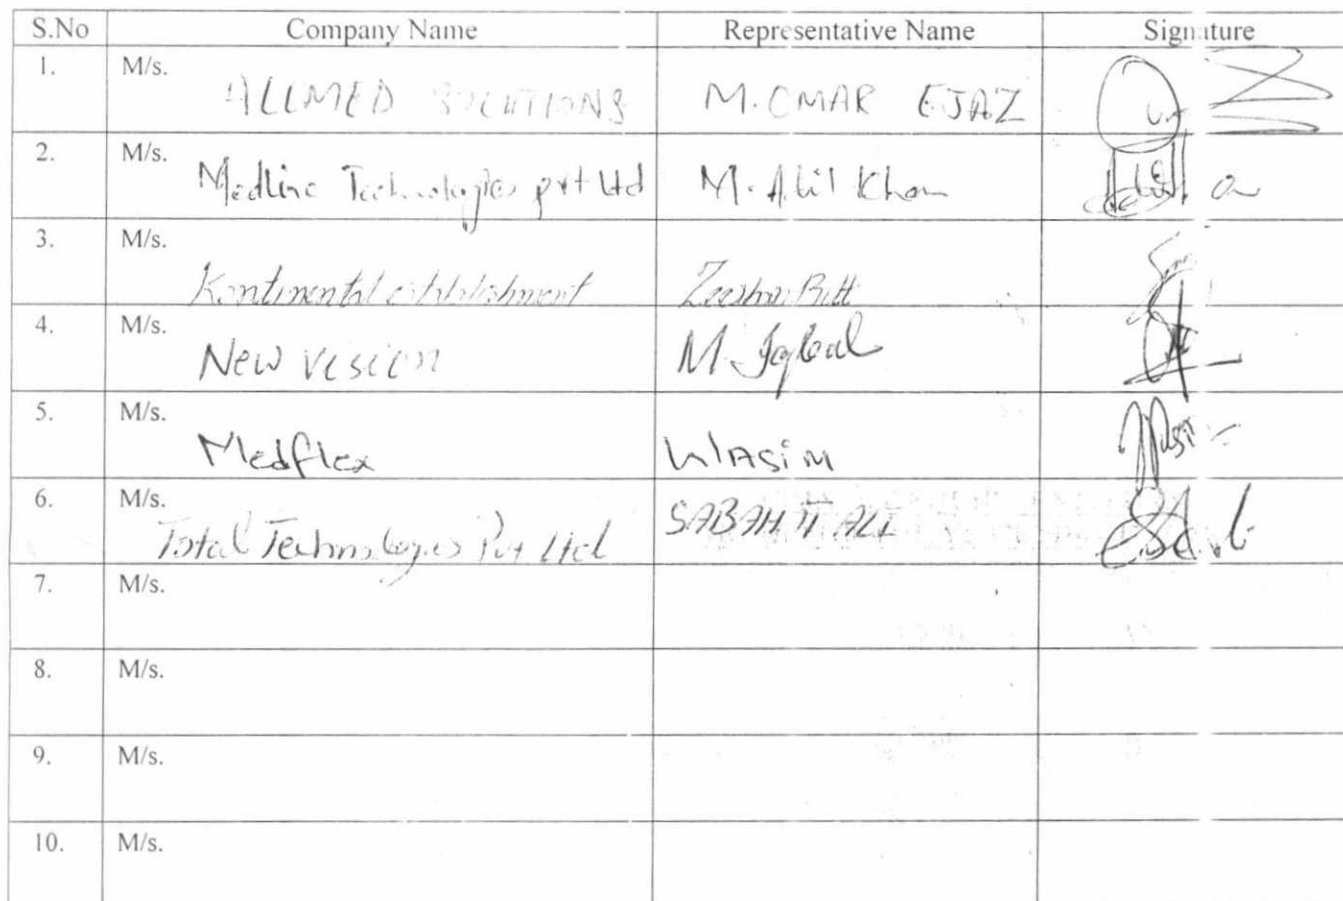 S.No Company Name Representative Name Signature
1. M/s. ALLMED SOLUTIONS M. OMAR EJAZ
2. M/s. Medline Technologies pvt Ltd M. Khan
3. M/s. Kontinental establishment Zeeshan Butt
4. M/s. New vision M. Iqbal
5. M/s. Medflex WASIM
6. M/s. Total Technologies Pvt Ltd ALI
7. M/s.
8. M/s.
9. M/s.
10. M/s.